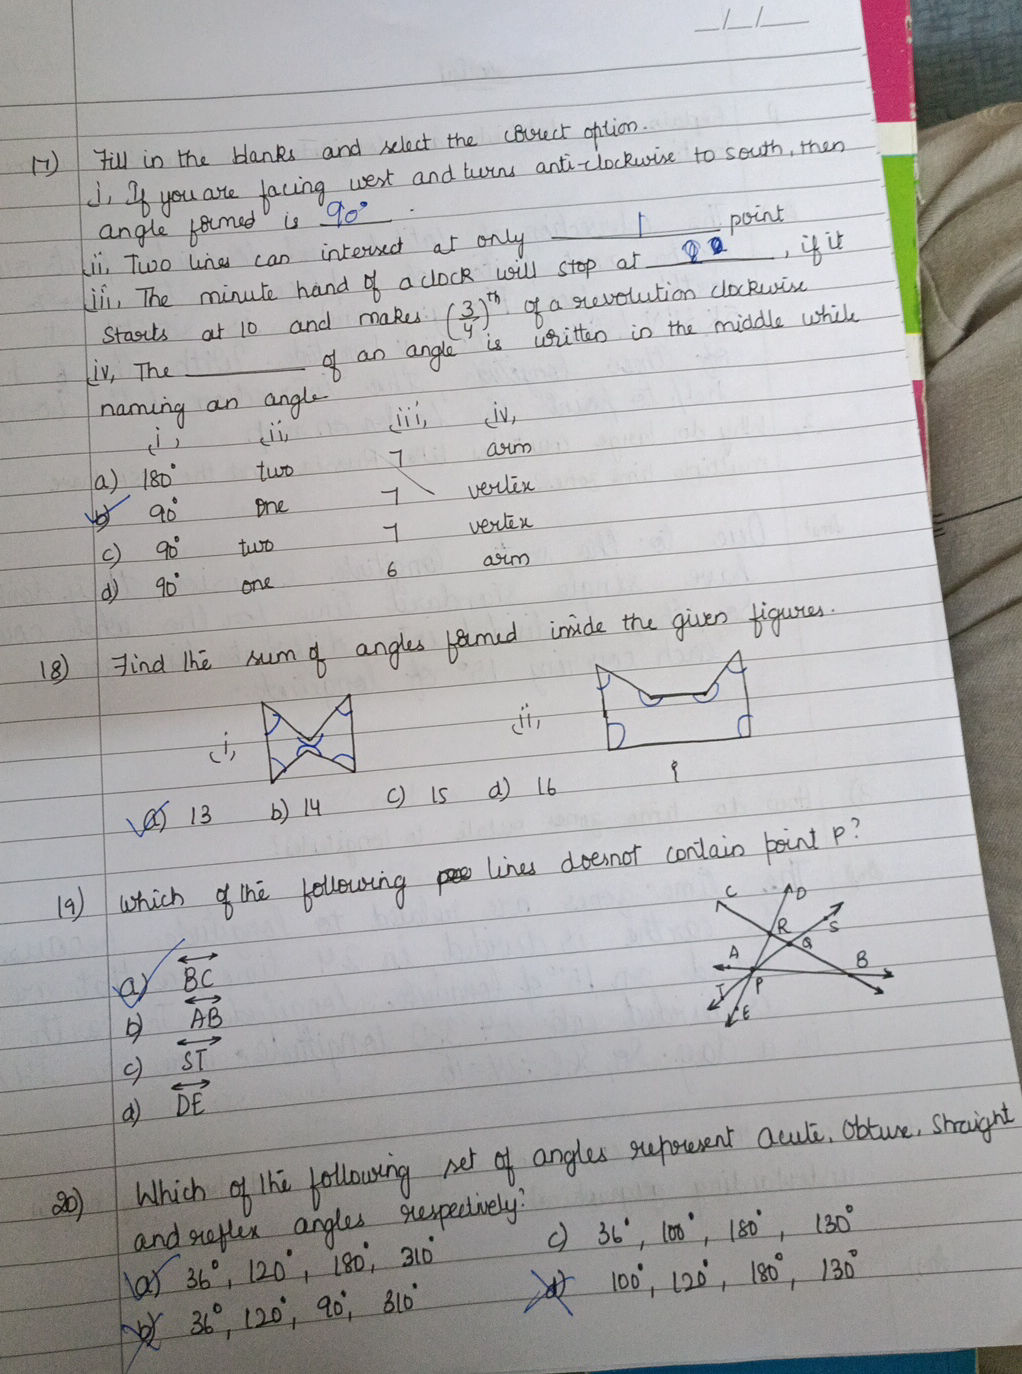 _/_/__
17) Fill in the blanks and select the correct option.
i, If you are facing west and turns anti-clockwise to south, then
angle formed is 90° .
ii, Two lines can intersect at only 1 point
iii, The minute hand of a clock will stop at ____, if it
starts at 10 and makes (3/4)th of a revolution clockwise
iv, The ____ of an angle is written in the middle while
naming an angle
i, ii, iii, iv,
a) 180° two 7 arm
b) 90° one 7 vertex
c) 90° two 7 vertex
d) 90° one 6 arm
18) Find the sum of angles formed inside the given figures.
i, ii,
a) 13 b) 14 c) 15 d) 16
19) Which of the following lines doesnot contain point P?
C D
R Q S
A B
T P
E
a) BC
b) AB
c) ST
d) DE
20) Which of the following set of angles represent acute, obtuse, straight
and reflex angles respectively?
a) 36°, 120°, 180°, 310° c) 36°, 100°, 180°, 130°
b) 36°, 120°, 90°, 310° d) 100°, 120°, 180°, 130°